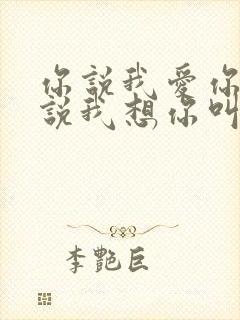 你說我愛你
說我想你叫
李艷巨